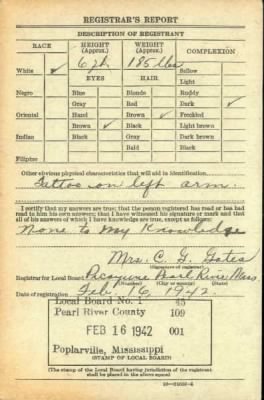 REGISTRAR'S REPORT
DESCRIPTION OF REGISTRANT
RACE HEIGHT (Approx.) WEIGHT (Approx.) COMPLEXION
White ✓ 6 ft. 185 lbs Sallow
EYES HAIR Light
Negro Blue Blonde Ruddy
Gray Red Dark ✓
Oriental Hazel Brown ✓ Freckled
Brown ✓ Black Light brown
Indian Black Gray Dark brown
Bald Black
Filipino
Other obvious physical characteristics that will aid in identification
Tattoo on left arm.
I certify that my answers are true; that the person registered has read or has had
read to him his own answers; that I have witnessed his signature or mark and that
all of his answers of which I have knowledge are true, except as follows:
None to my Knowledge
Mrs. C. G. Gates
(Signature of registrar)
Registrar for Local Board Picayune Pearl River Miss
(Number) (City or county) (State)
Date of registration Feb. 16, 1942
Local Board No. 1 45
Pearl River County 109
FEB 16 1942 001
Poplarville, Mississippi
(STAMP OF LOCAL BOARD)
(The stamp of the Local Board having jurisdiction of the registrant
shall be placed in the above space)